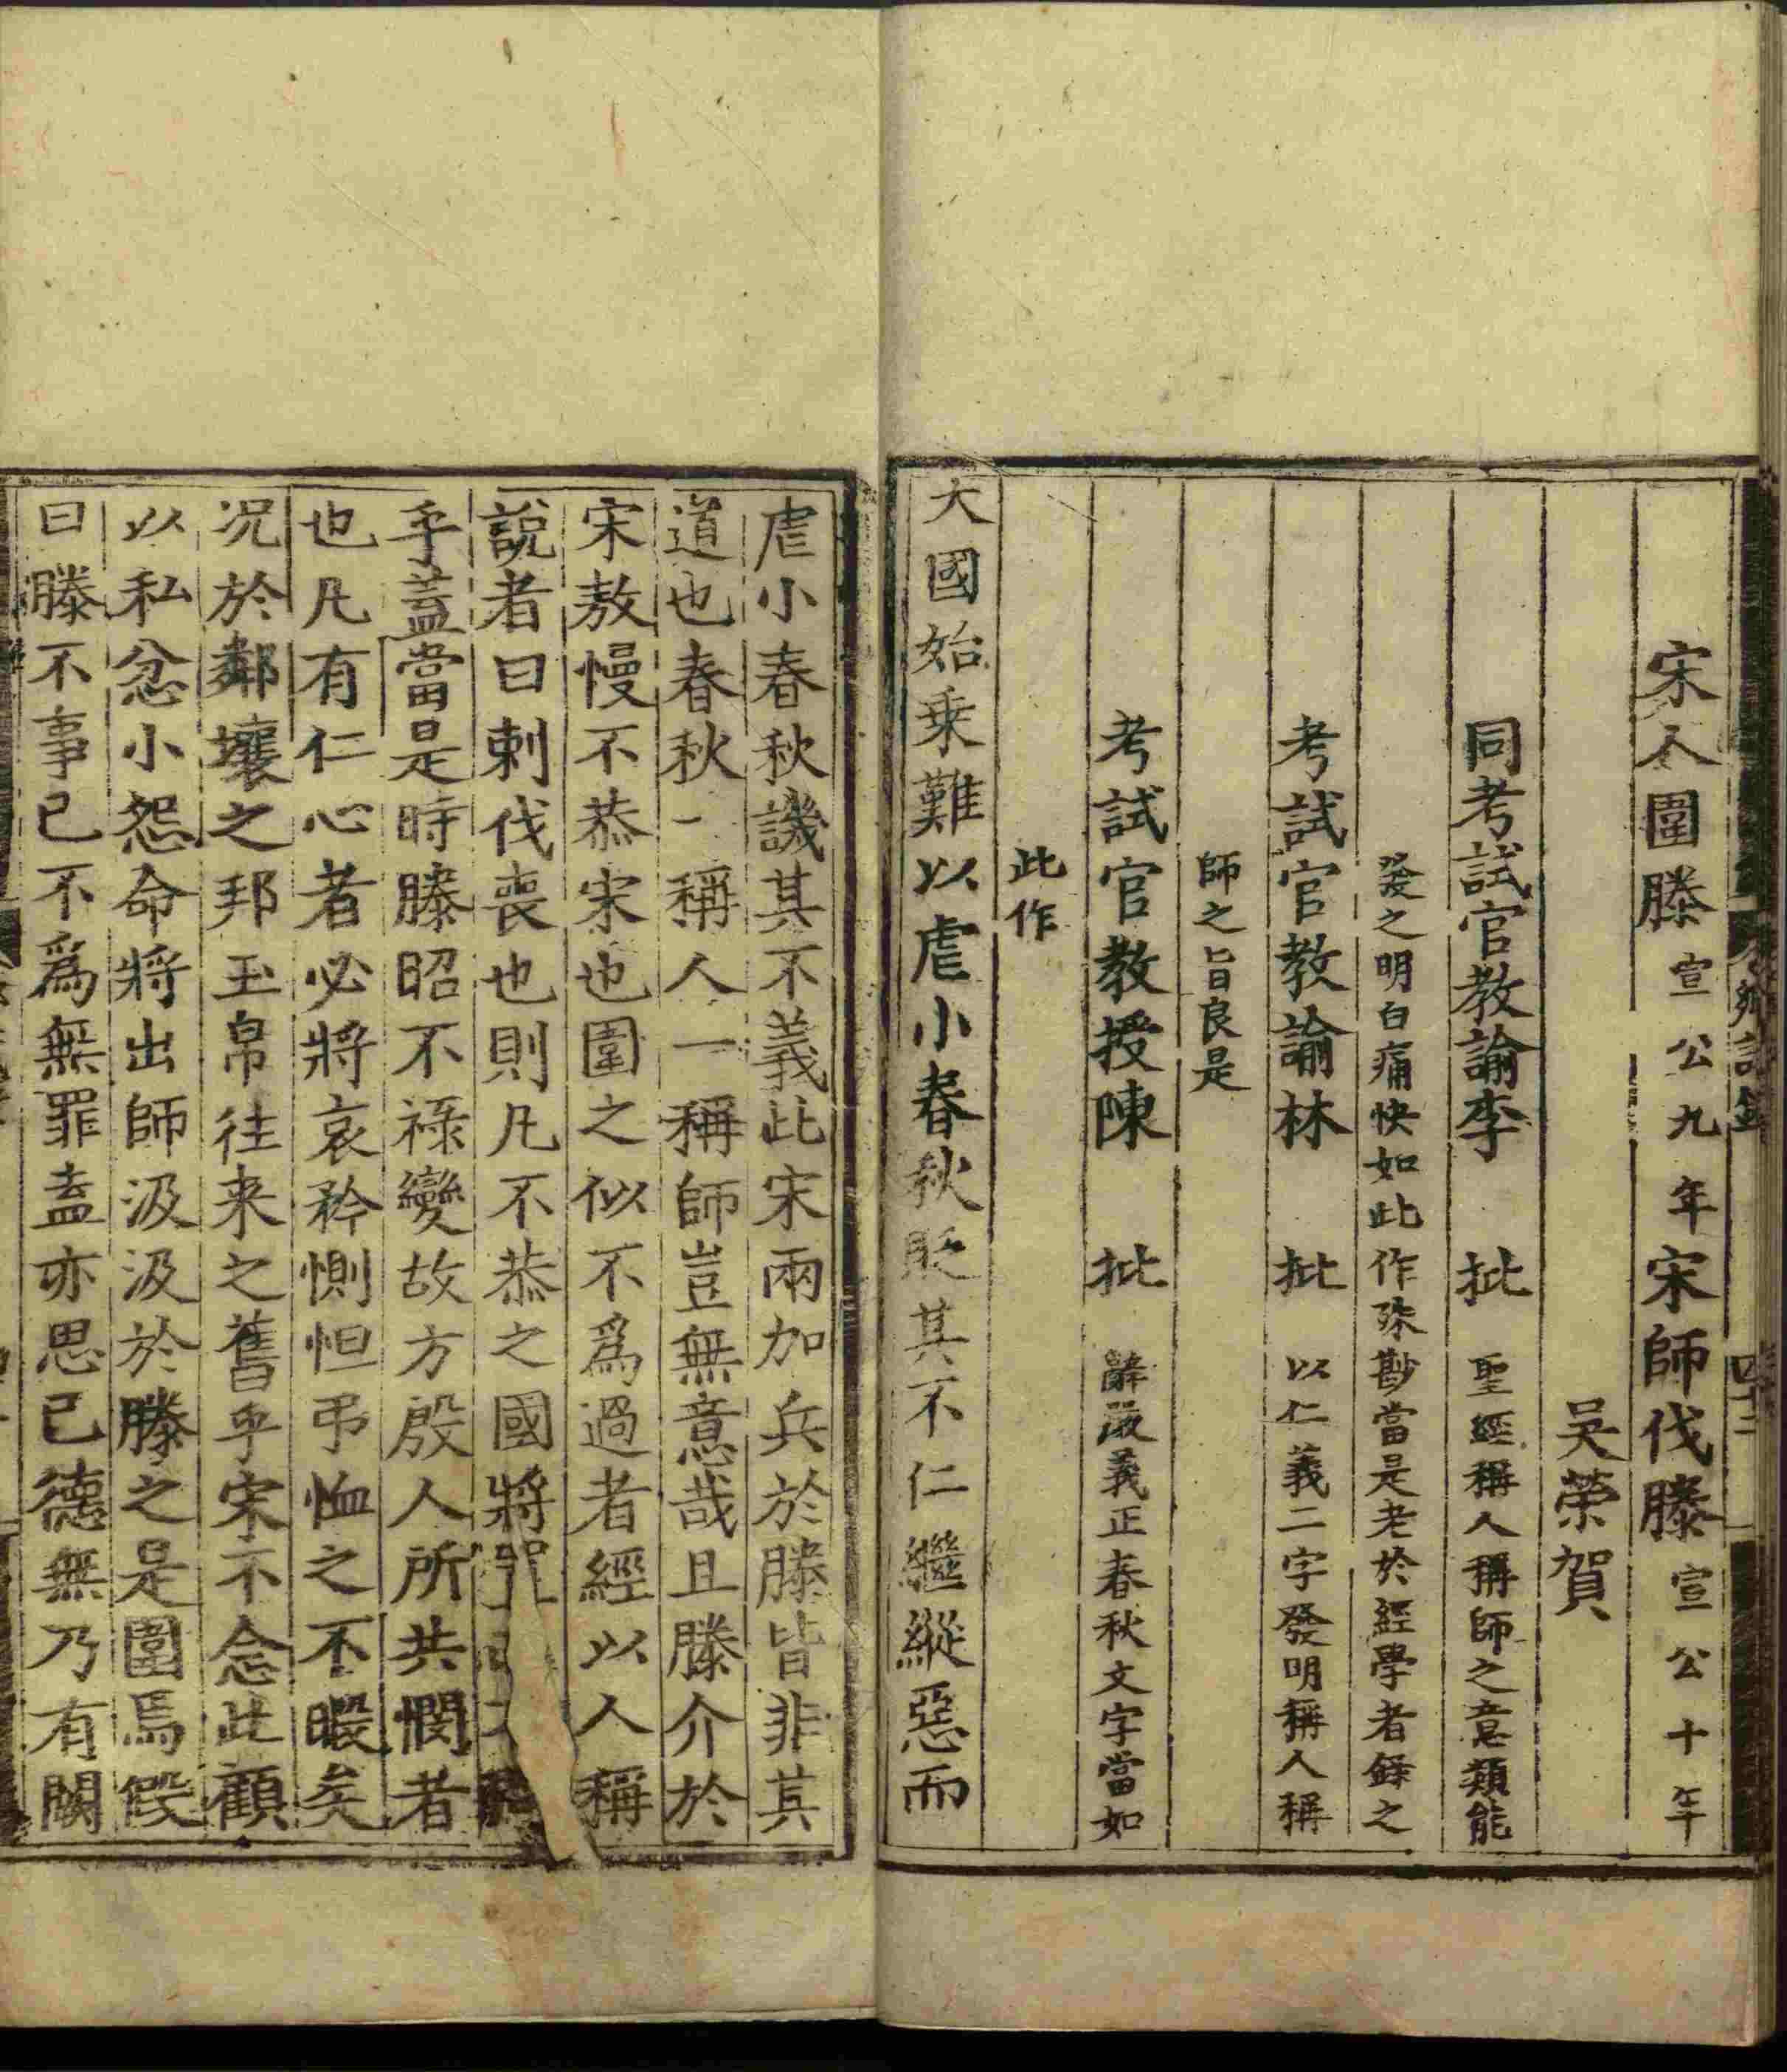 宋人圍滕宣公九年宋師伐滕宣公十年
吳榮賀
同考試官教諭李 批 聖經稱人稱師之意類能
發之明白痛快如此作殊尠當是老於經學者錄之
考試官教諭林 批 以仁義二字發明稱人稱
師之旨良是
考試官教授陳 批 辭嚴義正春秋文字當如
此作
大國始乗難以虐小春秋貶其不仁繼縱惡而
虐小春秋譏其不義此宋兩加兵於滕皆非其
道也春秋一稱人一稱師豈無意哉且滕介於
宋敖慢不恭宋也圍之似不為過者經以人稱
說者曰刺伐喪也則凡不恭之國將
乎蓋當是時滕昭不祿變故方殷人所共憫者
也凡有仁心者必將哀矜惻怛弔恤之不暇矣
况於鄰壤之邦玉帛往来之舊乎宋不念此顧
以私忿小怨命將出師汲汲於滕之是圍焉假
曰滕不事己不爲無罪盍亦思己德無乃有闕